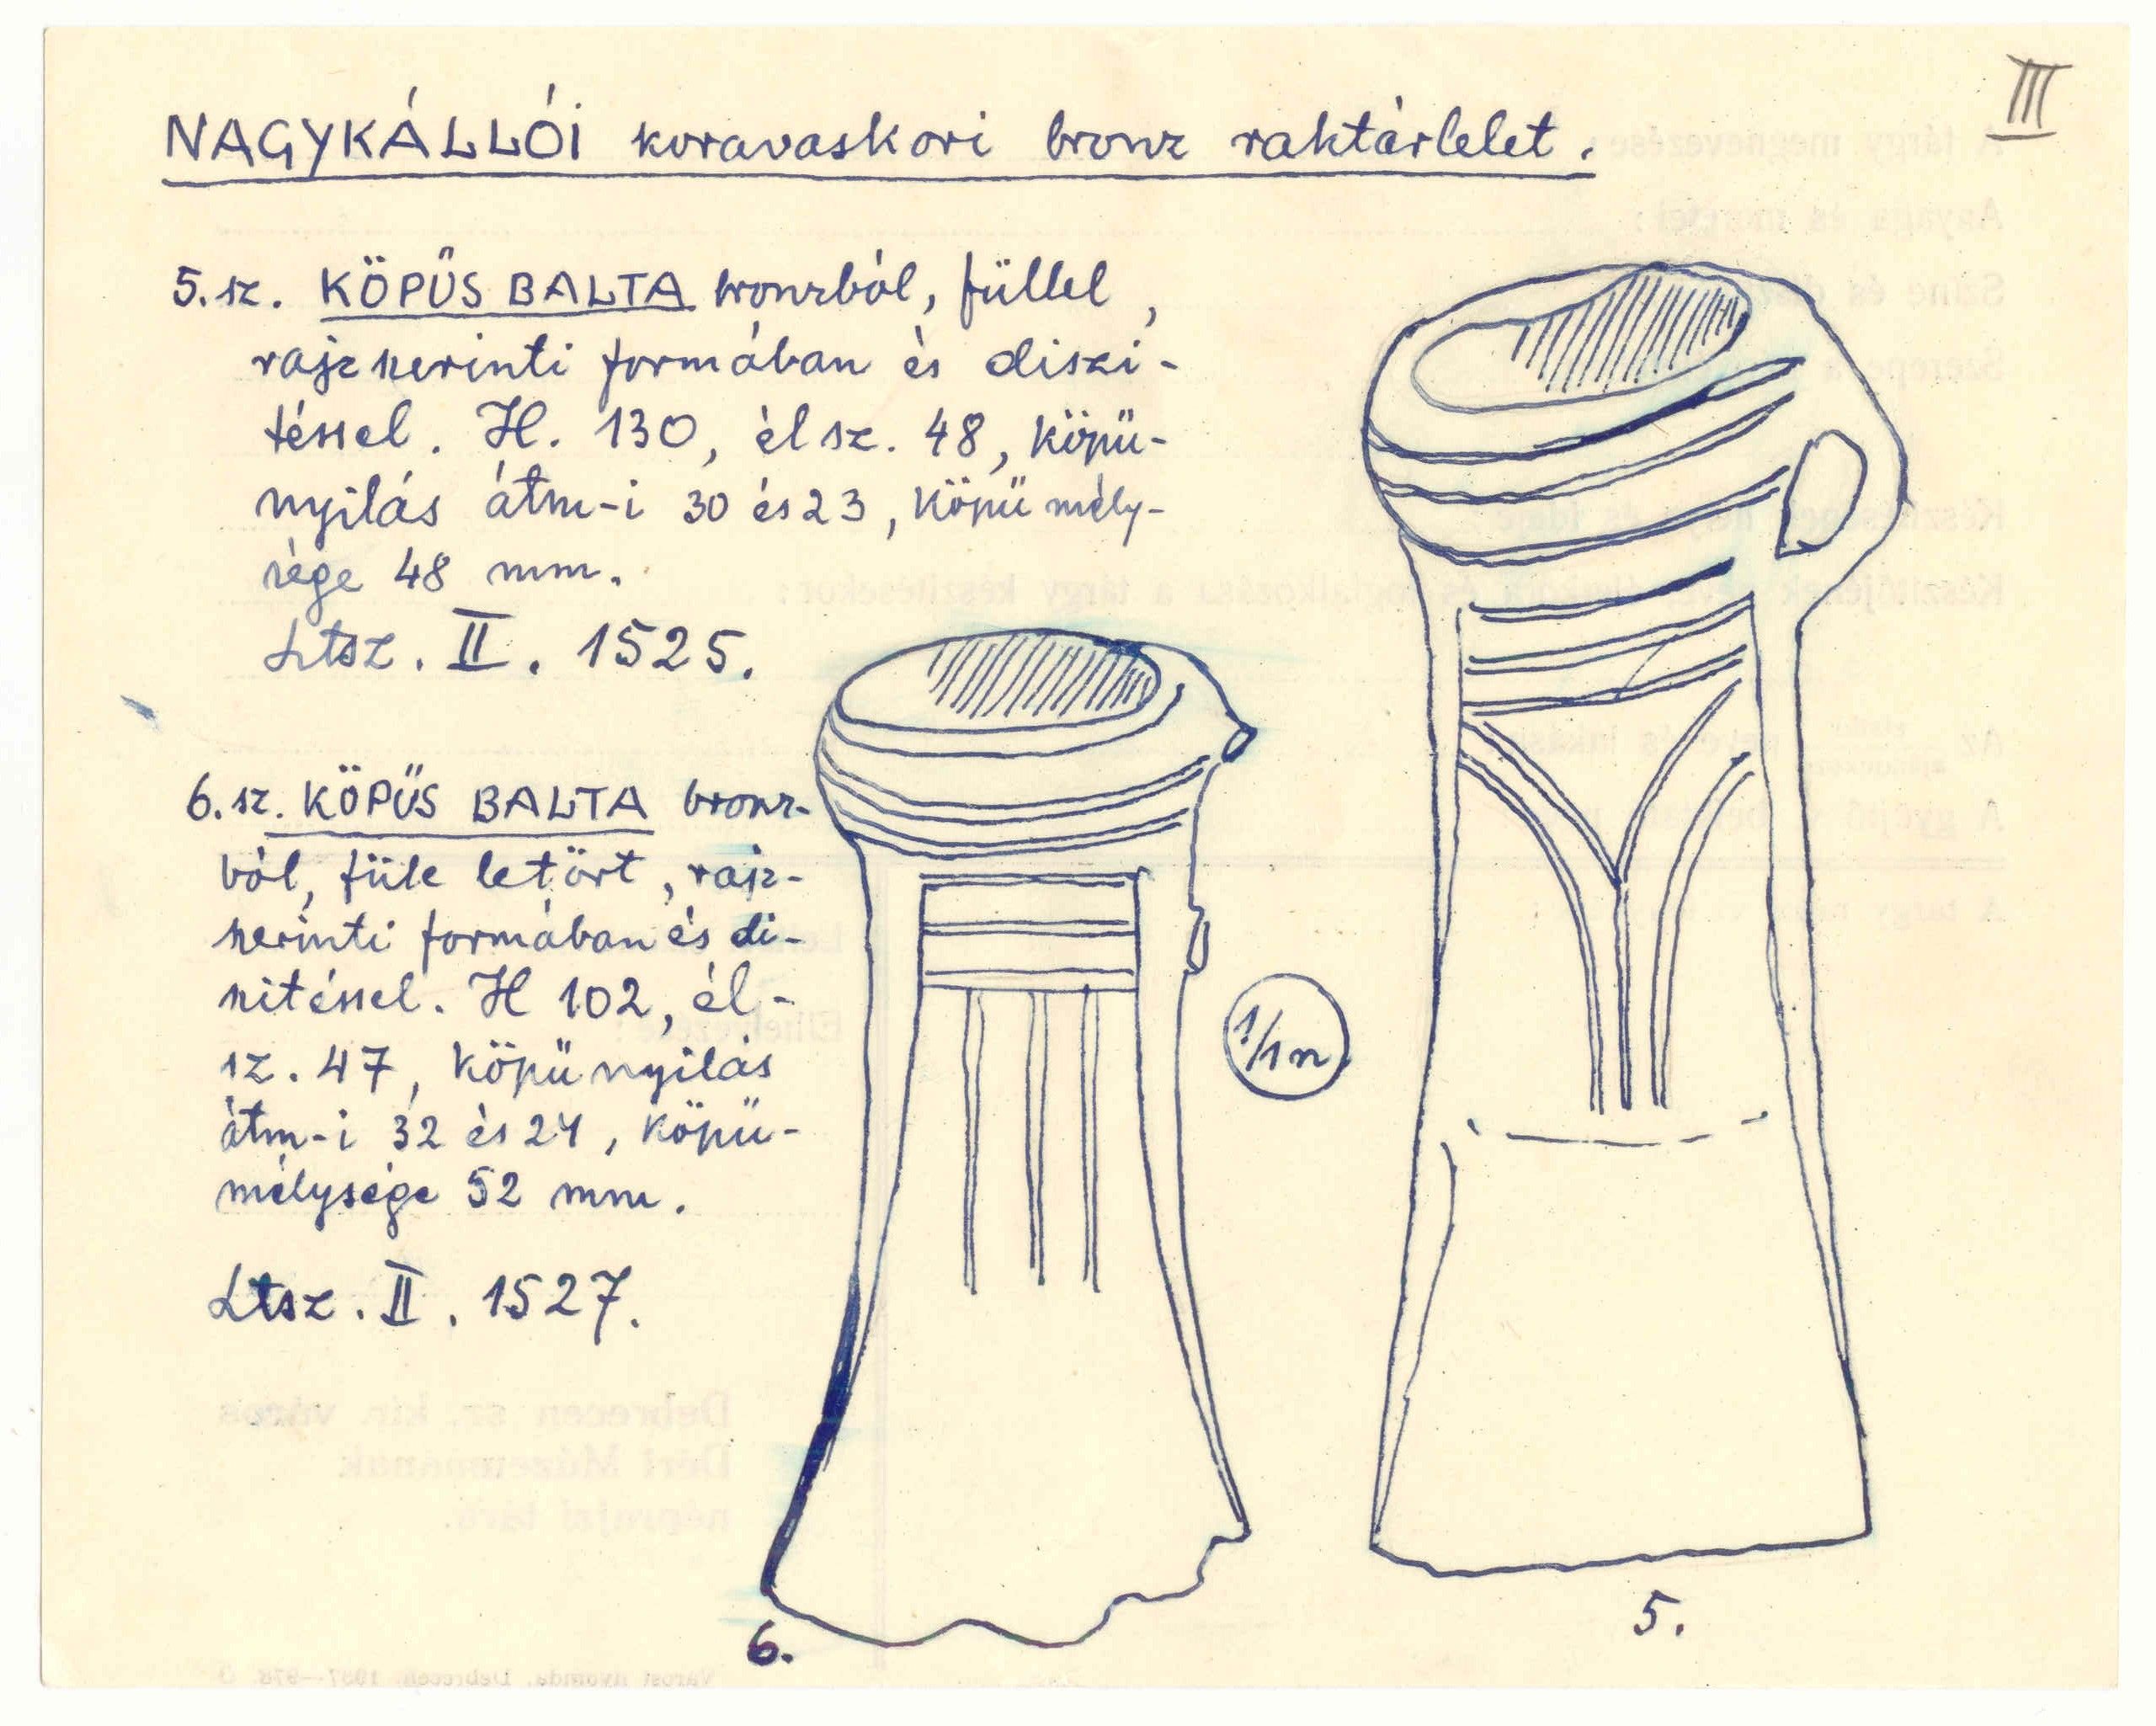 III
NAGYKÁLLÓI koravaskori bronz raktárlelet.
5. sz. KÖPŰS BALTA bronzból, füllel,
rajz szerinti formában és diszi-
téssel. H. 130, él sz. 48, köpü-
nyilás átm-i 30 és 23, köpü mély-
sége 48 mm.
Ltsz. II. 1525.
6. sz. KÖPŰS BALTA bronz-
ból, füle letört, rajz-
szerinti formában és di-
szitéssel. H 102, él-
sz. 47, köpü nyilás
átm-i 32 és 24, köpü-
mélysége 52 mm.
Ltsz. II. 1527.
1/1 n
6.
5.
A tárgy megnevezése:
Anyaga és méretei:
Készítőjének neve, életkora és foglalkozása a tárgy készítésekor:
Elhelyezése:
Debrecen sz. kir. város
Déri Múzeumának
néprajzi tára.
Városi nyomda, Debrecen, 1937—978.